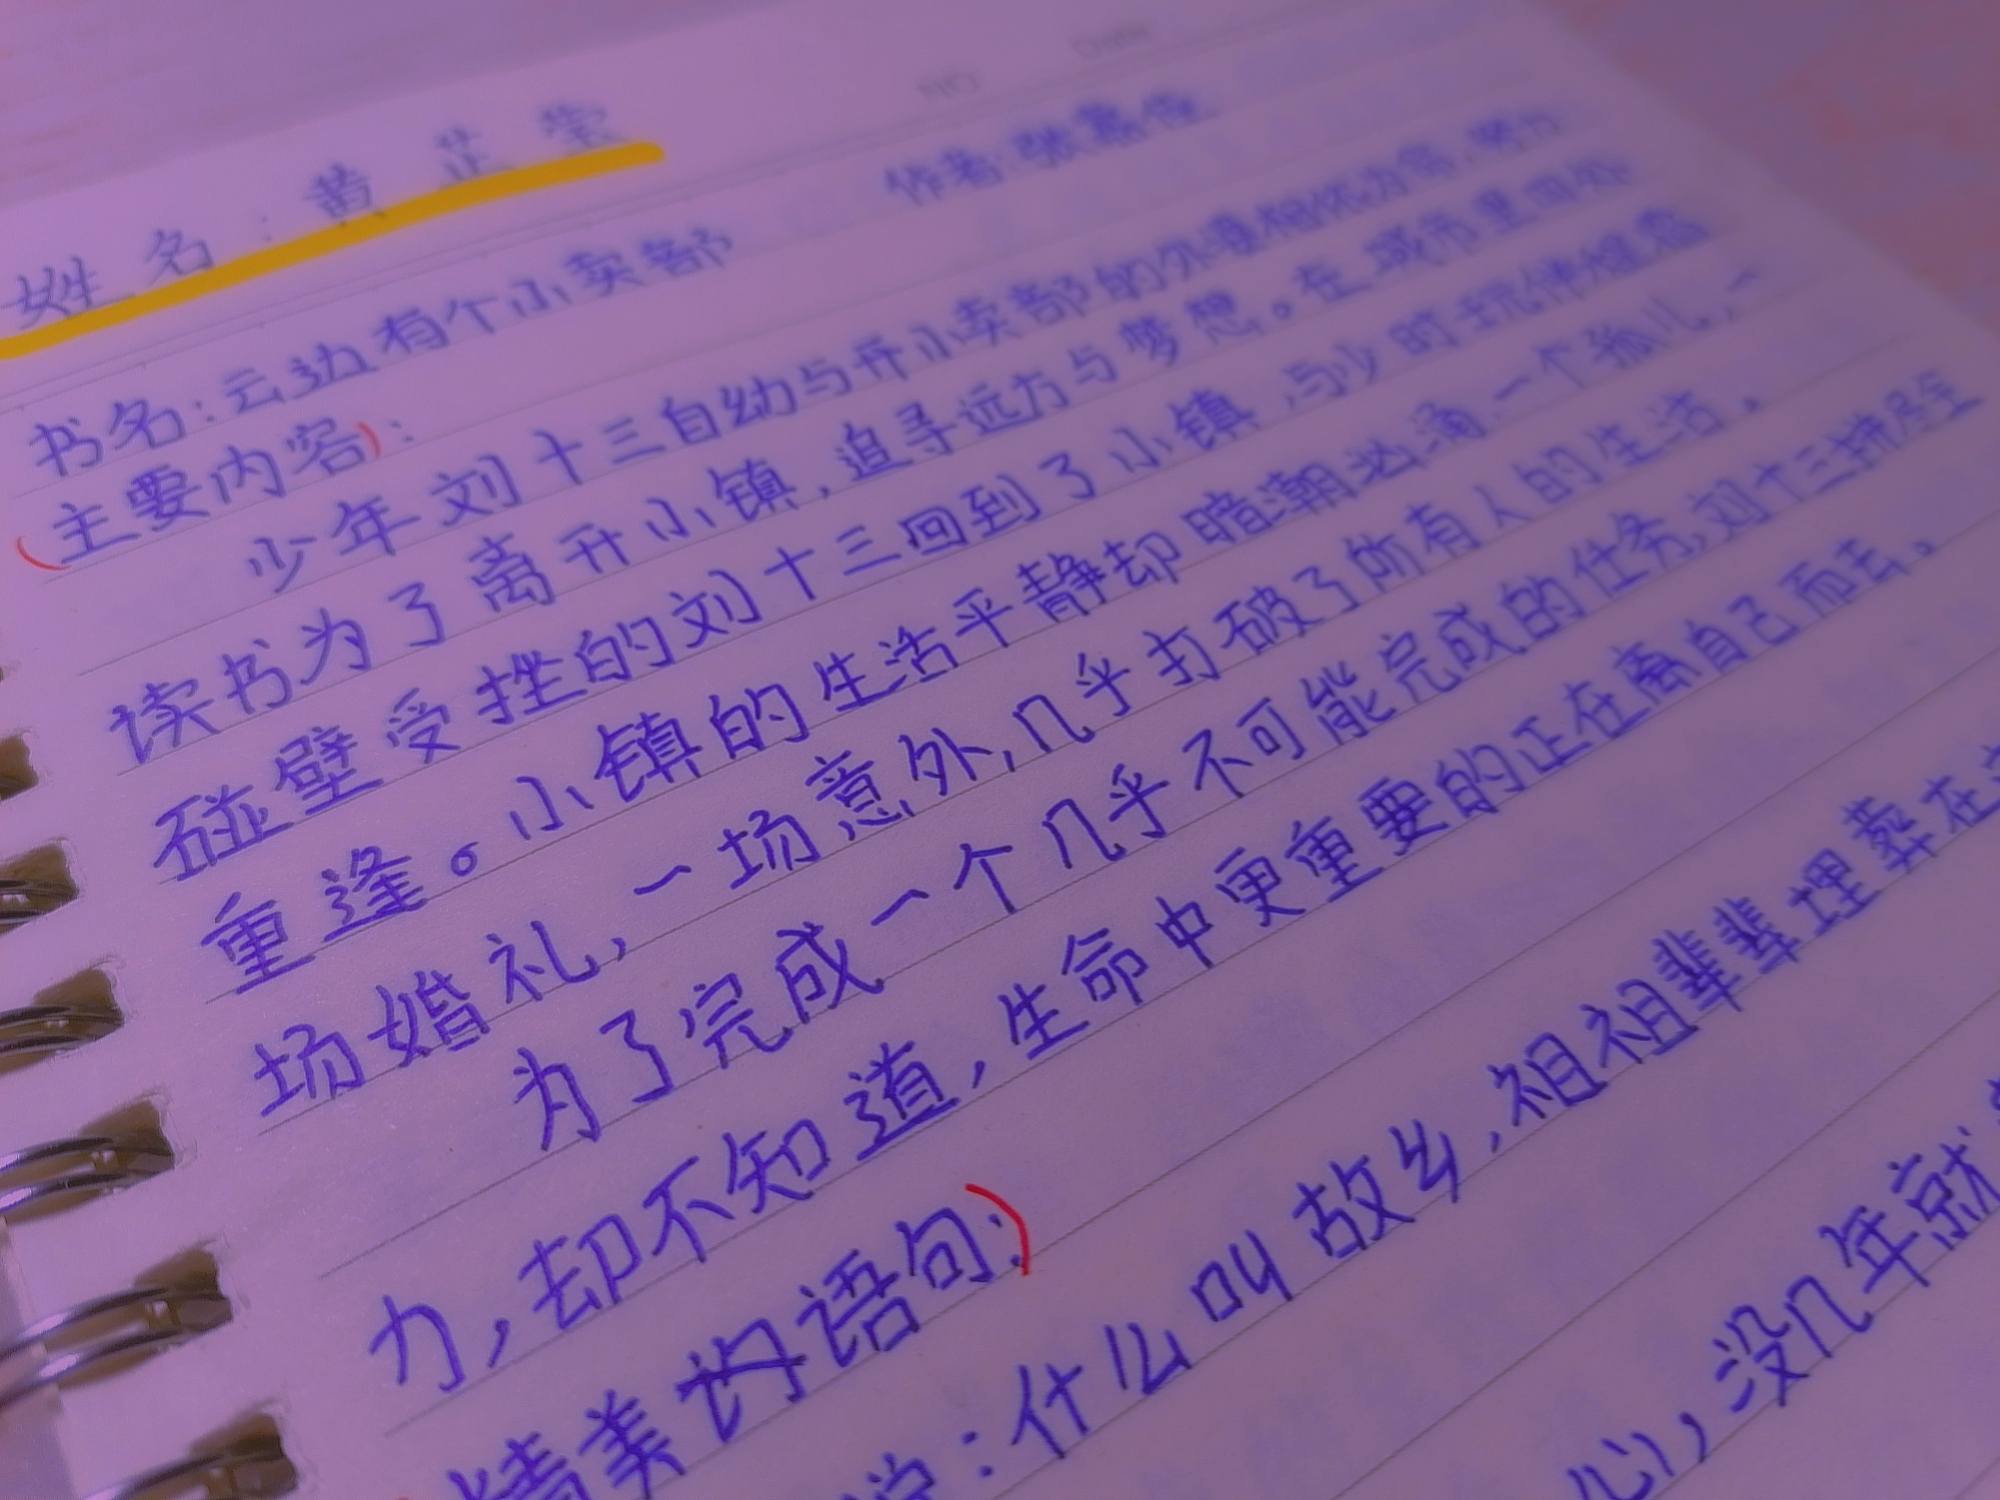 No Date
姓名：黄芷莹
书名：云边有个小卖部 作者：张嘉佳
（主要内容）：
少年刘十三自幼与开小卖部的外婆相依为命，努力
读书为了离开小镇，追寻远方与梦想。在城市里四处
碰壁受挫的刘十三回到了小镇，与少时玩伴程霜
重逢。小镇的生活平静却暗潮汹涌，一个孤儿，一
场婚礼，一场意外，几乎打破了所有人的生活。
为了完成一个几乎不可能完成的任务，刘十三拼尽全
力，却不知道，生命中更重要的正在离自己而去。
精美词语句：）
：什么叫故乡，祖祖辈辈埋葬在
心，没几年就